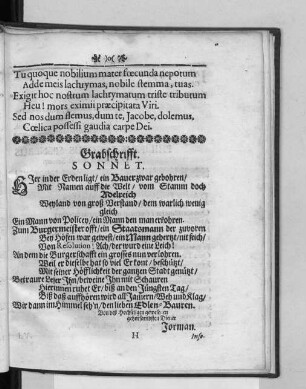 Tu quoque nobilium mater fœcunda nepotum
Adde meis lachrymas, nobile stemma, tuas.
Exigit hoc nostrum lachrymarum triste tributum
Heu! mors eximii præcipitata Viri.
Sed nos dum flemus, dum te, Jacobe, dolemus,
Cœlica possessi gaudia carpe Dei.
Grabschrifft.
SONNET.
HIer in der Erden ligt / ein Bauer zwar gebohren /
Mit Namen auff die Welt / vom Stamm doch
Adelreich
Weyland von groß Verstand / dem warlich wenig
gleich
Ein Mann von Policey / ein Mann den man erkohren.
Zum Burgermeister offt / ein Staatsmann der zuvoren
Bey Höfen war gewest / ein Mann gehertzt mit
Von Resolution: Ach / der ward eine Leich!
An dem die Burgerschafft ein grosses nun verlohren.
Weil er dieselbe hat so viel Er kont / beschützt /
Mit seiner Höfflichkeit der gantzen Stadt genützt /
Betraure Ihn / beweine Ihn mit Schauren
Hierinnen ruhet Er / biß an den Jüngsten Tag /
Biß daß auffhören wird all Jammern / Weh und Klag /
Wir dann im Himmel seh'n / den lieben Edlen-Bauren.
Jorman.
H